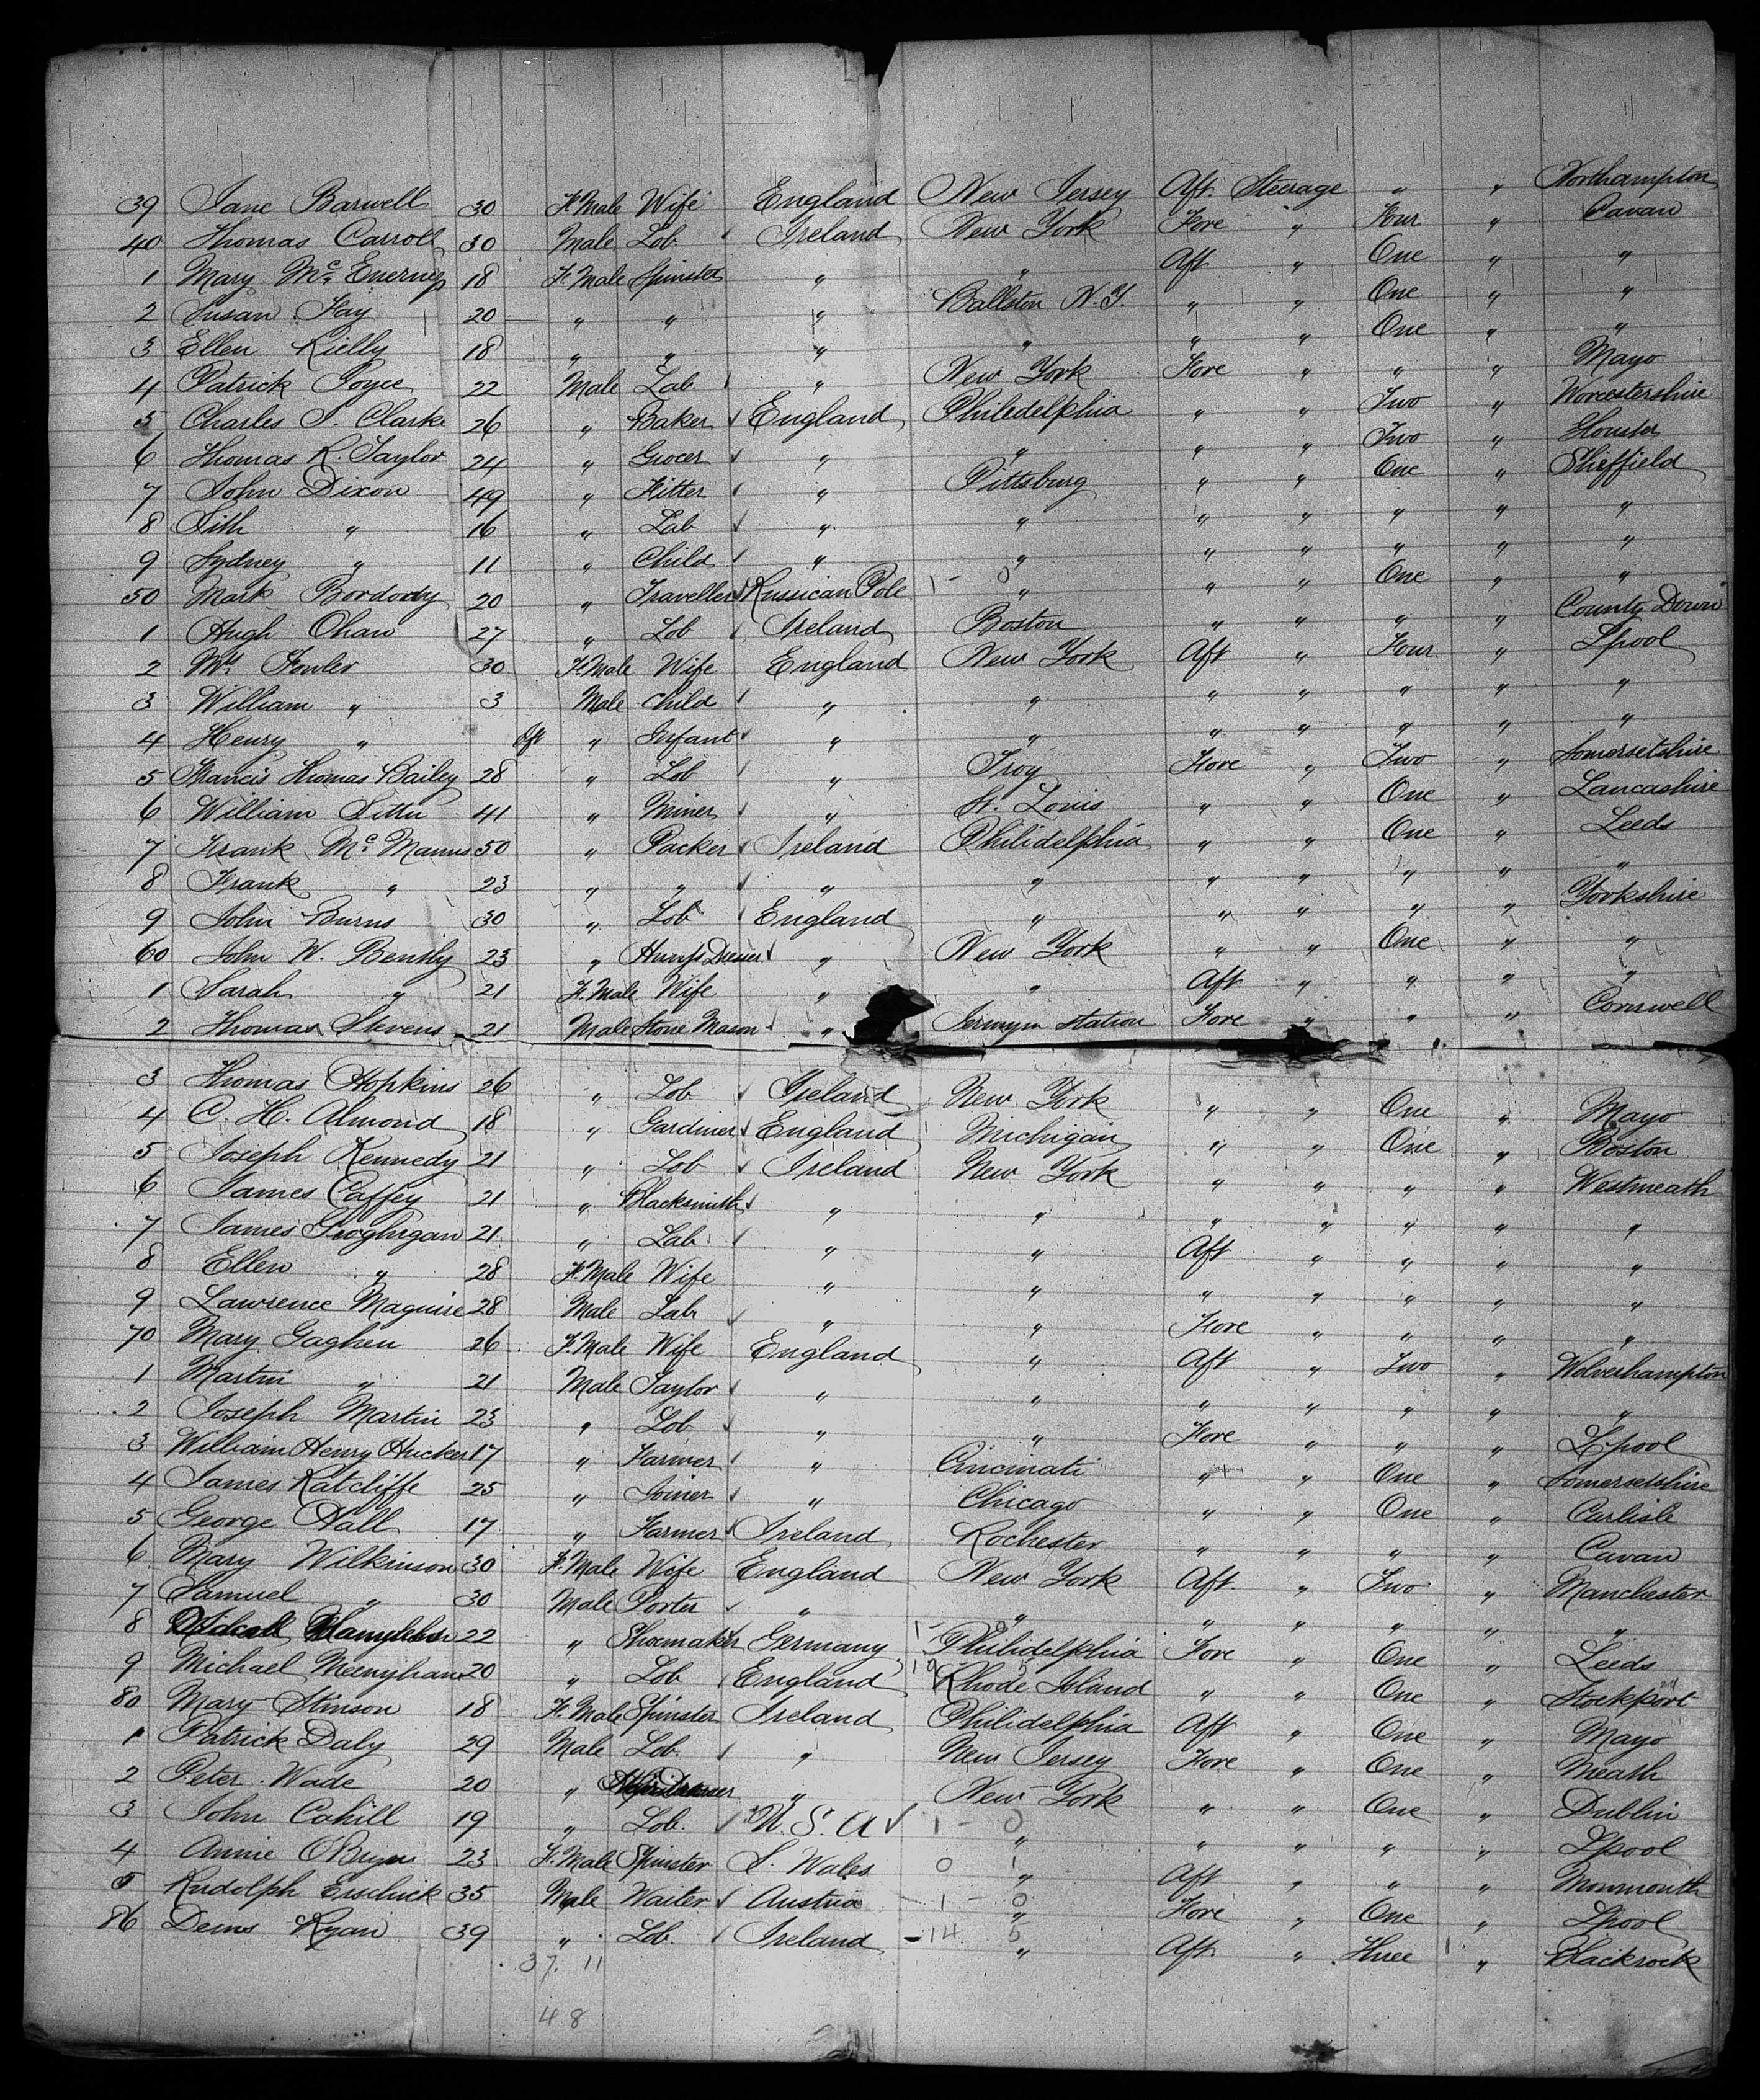 39 Jane Barwell 30 F. Male Wife England New Jersey Aft Steerage " " Northampton
40 Thomas Carroll 30 Male Lab Ireland New York Fore " Four " Cavan
1 Mary Mc 18 F. Male Spinster " " Aft " One " "
2 Susan Fay 20 " " " Ballston N.Y. " " One " "
3 Ellen Rielly 18 " " " " " " One " "
4 Patrick Joyce 22 Male Lab " New York Fore " " " Mayo
5 Charles J. Clarke 26 " Baker England Philidelphia " " Two " Worcestershire
6 Thomas R. Taylor 24 " Grocer " " " " Two "
7 John Dixon 49 " Fitter " Pittsburg " " One " Sheffield
8 Sith " 16 " Lab " " " " " " "
9 Sydney " 11 " Child " " " " " " "
50 Mark Bordordy 20 " Traveller Russican Pole 1 - 0 " " " One " "
1 Hugh Ohan 27 " Lab Ireland Boston " " " " County Down
2 Mrs Fowler 30 F. Male Wife England New York Aft " Four " Lpool
3 William " 3 Male Child " " " " " " "
4 Henry " Inft " Infant " " " " " " "
5 Francis Thomas Bailey 28 " Lab " Troy Fore " Two " Somersetshire
6 William 41 " Miner " St. Louis " " One " Lancashire
7 Frank Mc Manus 50 " Packer Ireland Philidelphia " " One " Leeds
8 Frank " 23 " " " " " " " " "
9 John Burns 30 " Lab England " " " " " Yorkshire
60 John W. Bently 23 " Dresser " New York " " One " "
1 Sarah " 21 F. Male Wife " " Aft " " " "
2 Thomas Stevens 21 Male Stone Mason " Jermyn Station Fore " " " Cornwell
3 Thomas Hopkins 26 " Lab Ireland New York " " One " Mayo
4 C. H. Almond 18 " Gardiner England Michigan " " One " Boston
5 Joseph Kennedy 21 " Lab Ireland New York " " " " Westmeath
6 James Caffey 21 " Blacksmith " " " " " " "
7 James Geoghigan 21 " Lab " " Aft " " " "
8 Ellen " 28 F. Male Wife " " " " " " "
9 Lawrence Maguire 28 Male Lab " " Fore " " " "
70 Mary Gaghen 26 F. Male Wife England " Aft " Two " Wolverhampton
1 Martin " 21 Male Taylor " " " " " " "
2 Joseph Martin 23 " Lab " " Fore " " " Lpool
3 William Henry Hucker 17 " Farmer " Cincinati " " One " Somersetshire
4 James Ratcliffe 25 " Joiner " Chicago " " One " Carlisle
5 George Hall 17 " Farmer Ireland Rochester " " " " Cavan
6 Mary Wilkinson 30 F. Male Wife England New York Aft " Two " Manchester
7 Samuel " 30 Male Porter " " " " " " "
8 22 " Shoemaker Germany 1 - 0 Philidelphia Fore " One " Leeds
9 Michael Meenyhan 20 " Lab England 19 5 Rhode Island " " One " Stockport
80 Mary Stinson 18 F. Male Spinster Ireland Philidelphia Aft " One " Mayo
1 Patrick Daly 29 Male Lab. " New Jersey Fore " One " Meath
2 Peter Wade 20 " " New York " " One " Dublin
3 John Cahill 19 " Lab. U.S.A 1 - 0 " " " " " Lpool
4 Annie OBryen 23 F. Male Spinster S. Wales 0 1 " Aft " " " Monmouth
5 Rudolph Erschick 35 Male Waiter Austria 1 - 0 " Fore " One " Lpool
86 Denis Ryan 39 " Lab. Ireland 14 5 " Aft " Three " Blackrock
37. 11
48